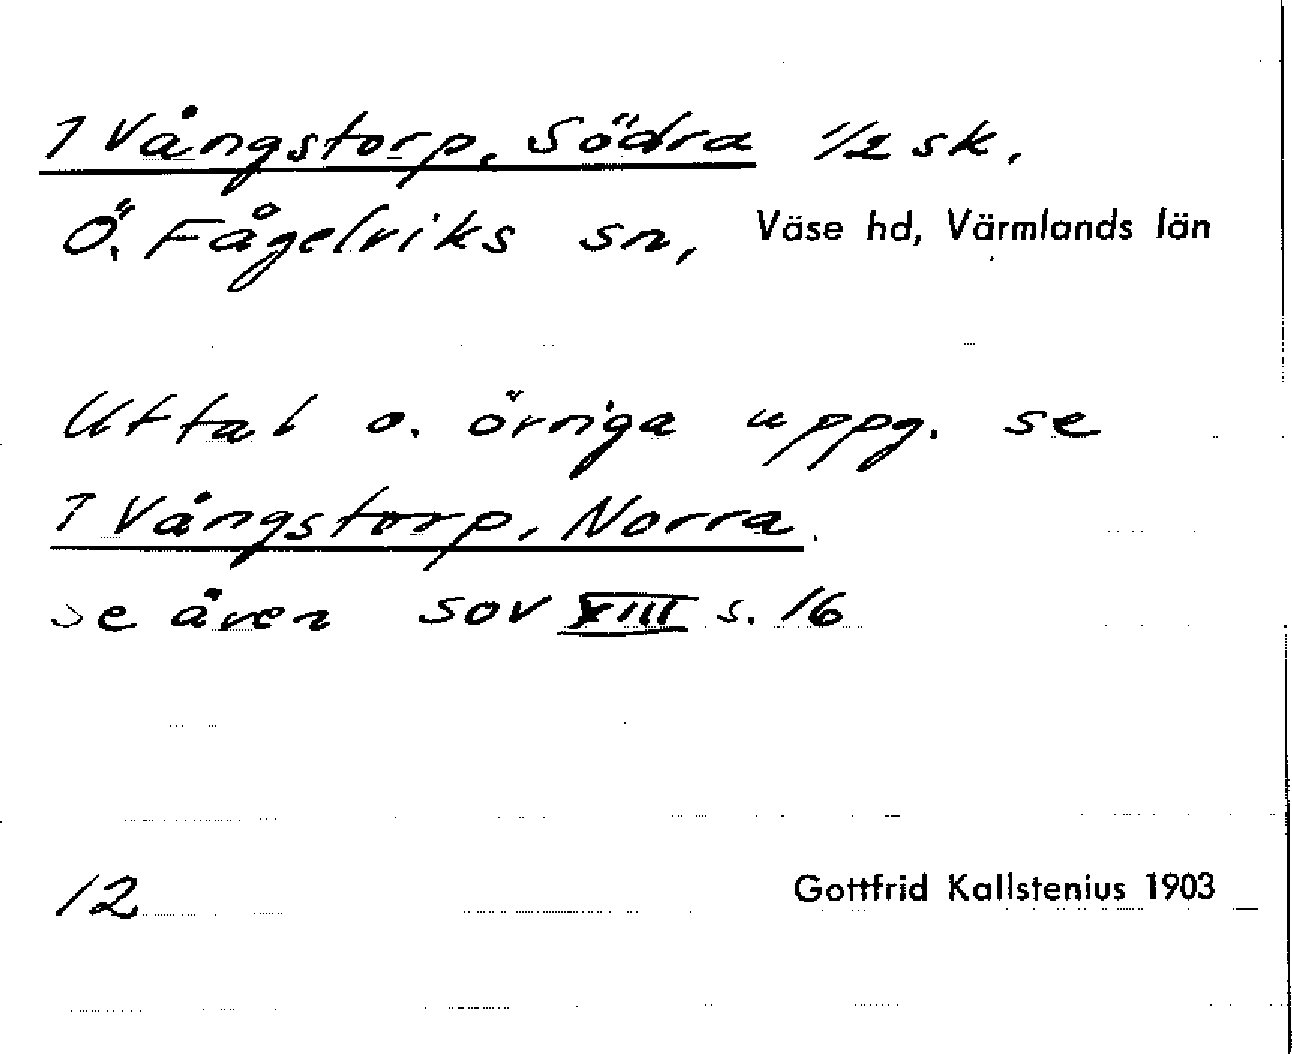 1 Vångstorp, Södra 1/2 sk.
Ö. Fågelviks sn, Väse hd, Värmlands län
Uttal o. övriga uppg. se
1 Vångstorp, Norra.
se även SOV XIII s. 16
12 Gottfrid Kallstenius 1903